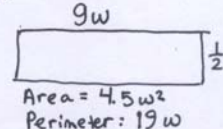 9w
1/2
Area = 4.5w²
Perimeter: 19w